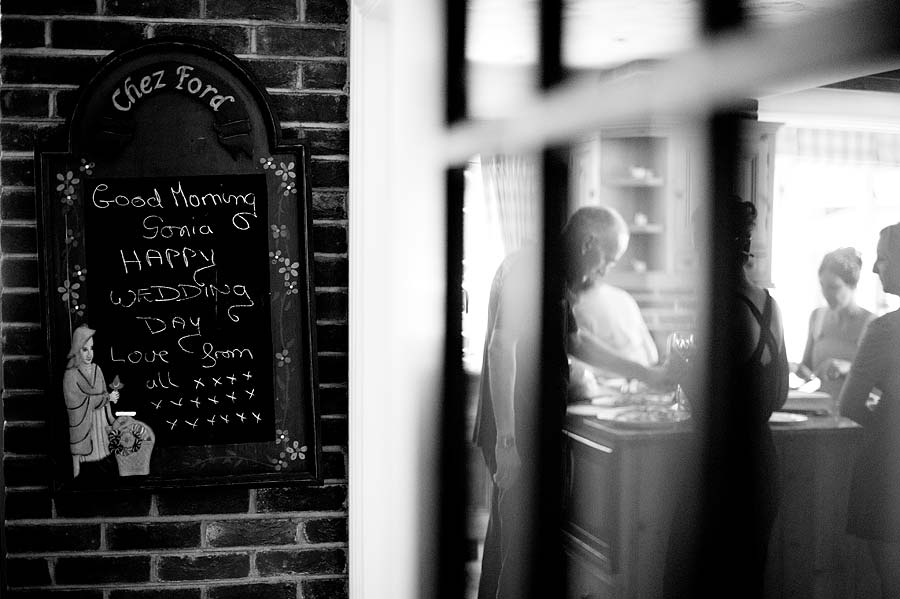 Chez Ford
Good Morning
Sonia
HAPPY
WEDDING
DAY
Love from
all xxxx
xxxxxx
xxxxx